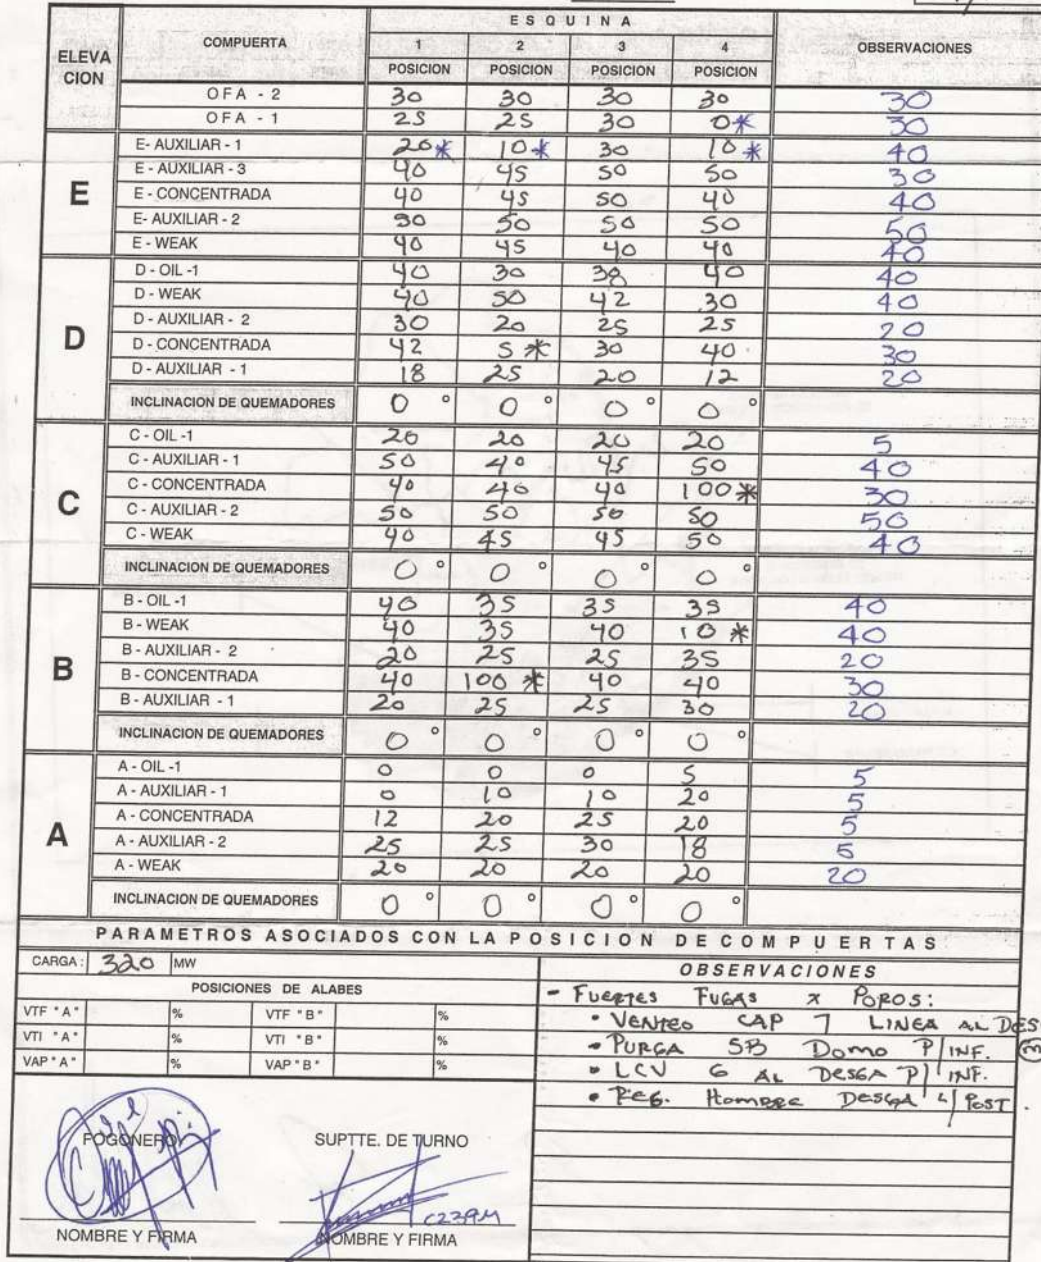 ESQUINA
ELEVA CION COMPUERTA 1 2 3 4 OBSERVACIONES
POSICION POSICION POSICION POSICION
OFA - 2 30 30 30 30 30
OFA - 1 25 25 30 0* 30
E
E- AUXILIAR - 1 20* 10* 30 10* 40
E - AUXILIAR - 3 40 45 50 50 30
E - CONCENTRADA 40 45 50 40 40
E- AUXILIAR - 2 50 50 50 50
E - WEAK 40 45 40 40 40
D
D - OIL -1 40 30 38 40 40
D - WEAK 40 50 42 30 40
D - AUXILIAR - 2 30 20 25 25 20
D - CONCENTRADA 42 5* 30 40 30
D - AUXILIAR - 1 18 25 20 12 20
INCLINACION DE QUEMADORES 0° 0° 0° 0°
C
C - OIL -1 20 20 20 20 5
C - AUXILIAR - 1 50 40 45 50 40
C - CONCENTRADA 40 40 40 100* 30
C - AUXILIAR - 2 50 50 50 50 50
C - WEAK 40 45 45 50 40
INCLINACION DE QUEMADORES 0° 0° 0° 0°
B
B - OIL -1 40 35 35 35 40
B - WEAK 40 35 40 10* 40
B - AUXILIAR - 2 20 25 25 35 20
B - CONCENTRADA 40 100* 40 40 30
B - AUXILIAR - 1 20 25 25 30 20
INCLINACION DE QUEMADORES 0° 0° 0° 0°
A
A - OIL -1 0 0 0 5 5
A - AUXILIAR - 1 0 10 10 20 5
A - CONCENTRADA 12 20 25 20 5
A - AUXILIAR - 2 25 25 30 18 5
A - WEAK 20 20 20 20 20
INCLINACION DE QUEMADORES 0° 0° 0° 0°
PARAMETROS ASOCIADOS CON LA POSICION DE COMPUERTAS
CARGA: 320 MW
POSICIONES DE ALABES
VTF "A" % VTF "B" %
VTI "A" % VTI "B" %
VAP "A" % VAP "B" %
OBSERVACIONES
- FUERTES FUGAS x POROS:
• VENTEO CAP 7 LINEA AL DES
• PURGA SB DOMO P/INF.
• LCV 6 AL DESGA P/ INF.
• REG. HOMBRE DESGA L/POST.
FOGONERO SUPTTE. DE TURNO
C239M
NOMBRE Y FIRMA NOMBRE Y FIRMA